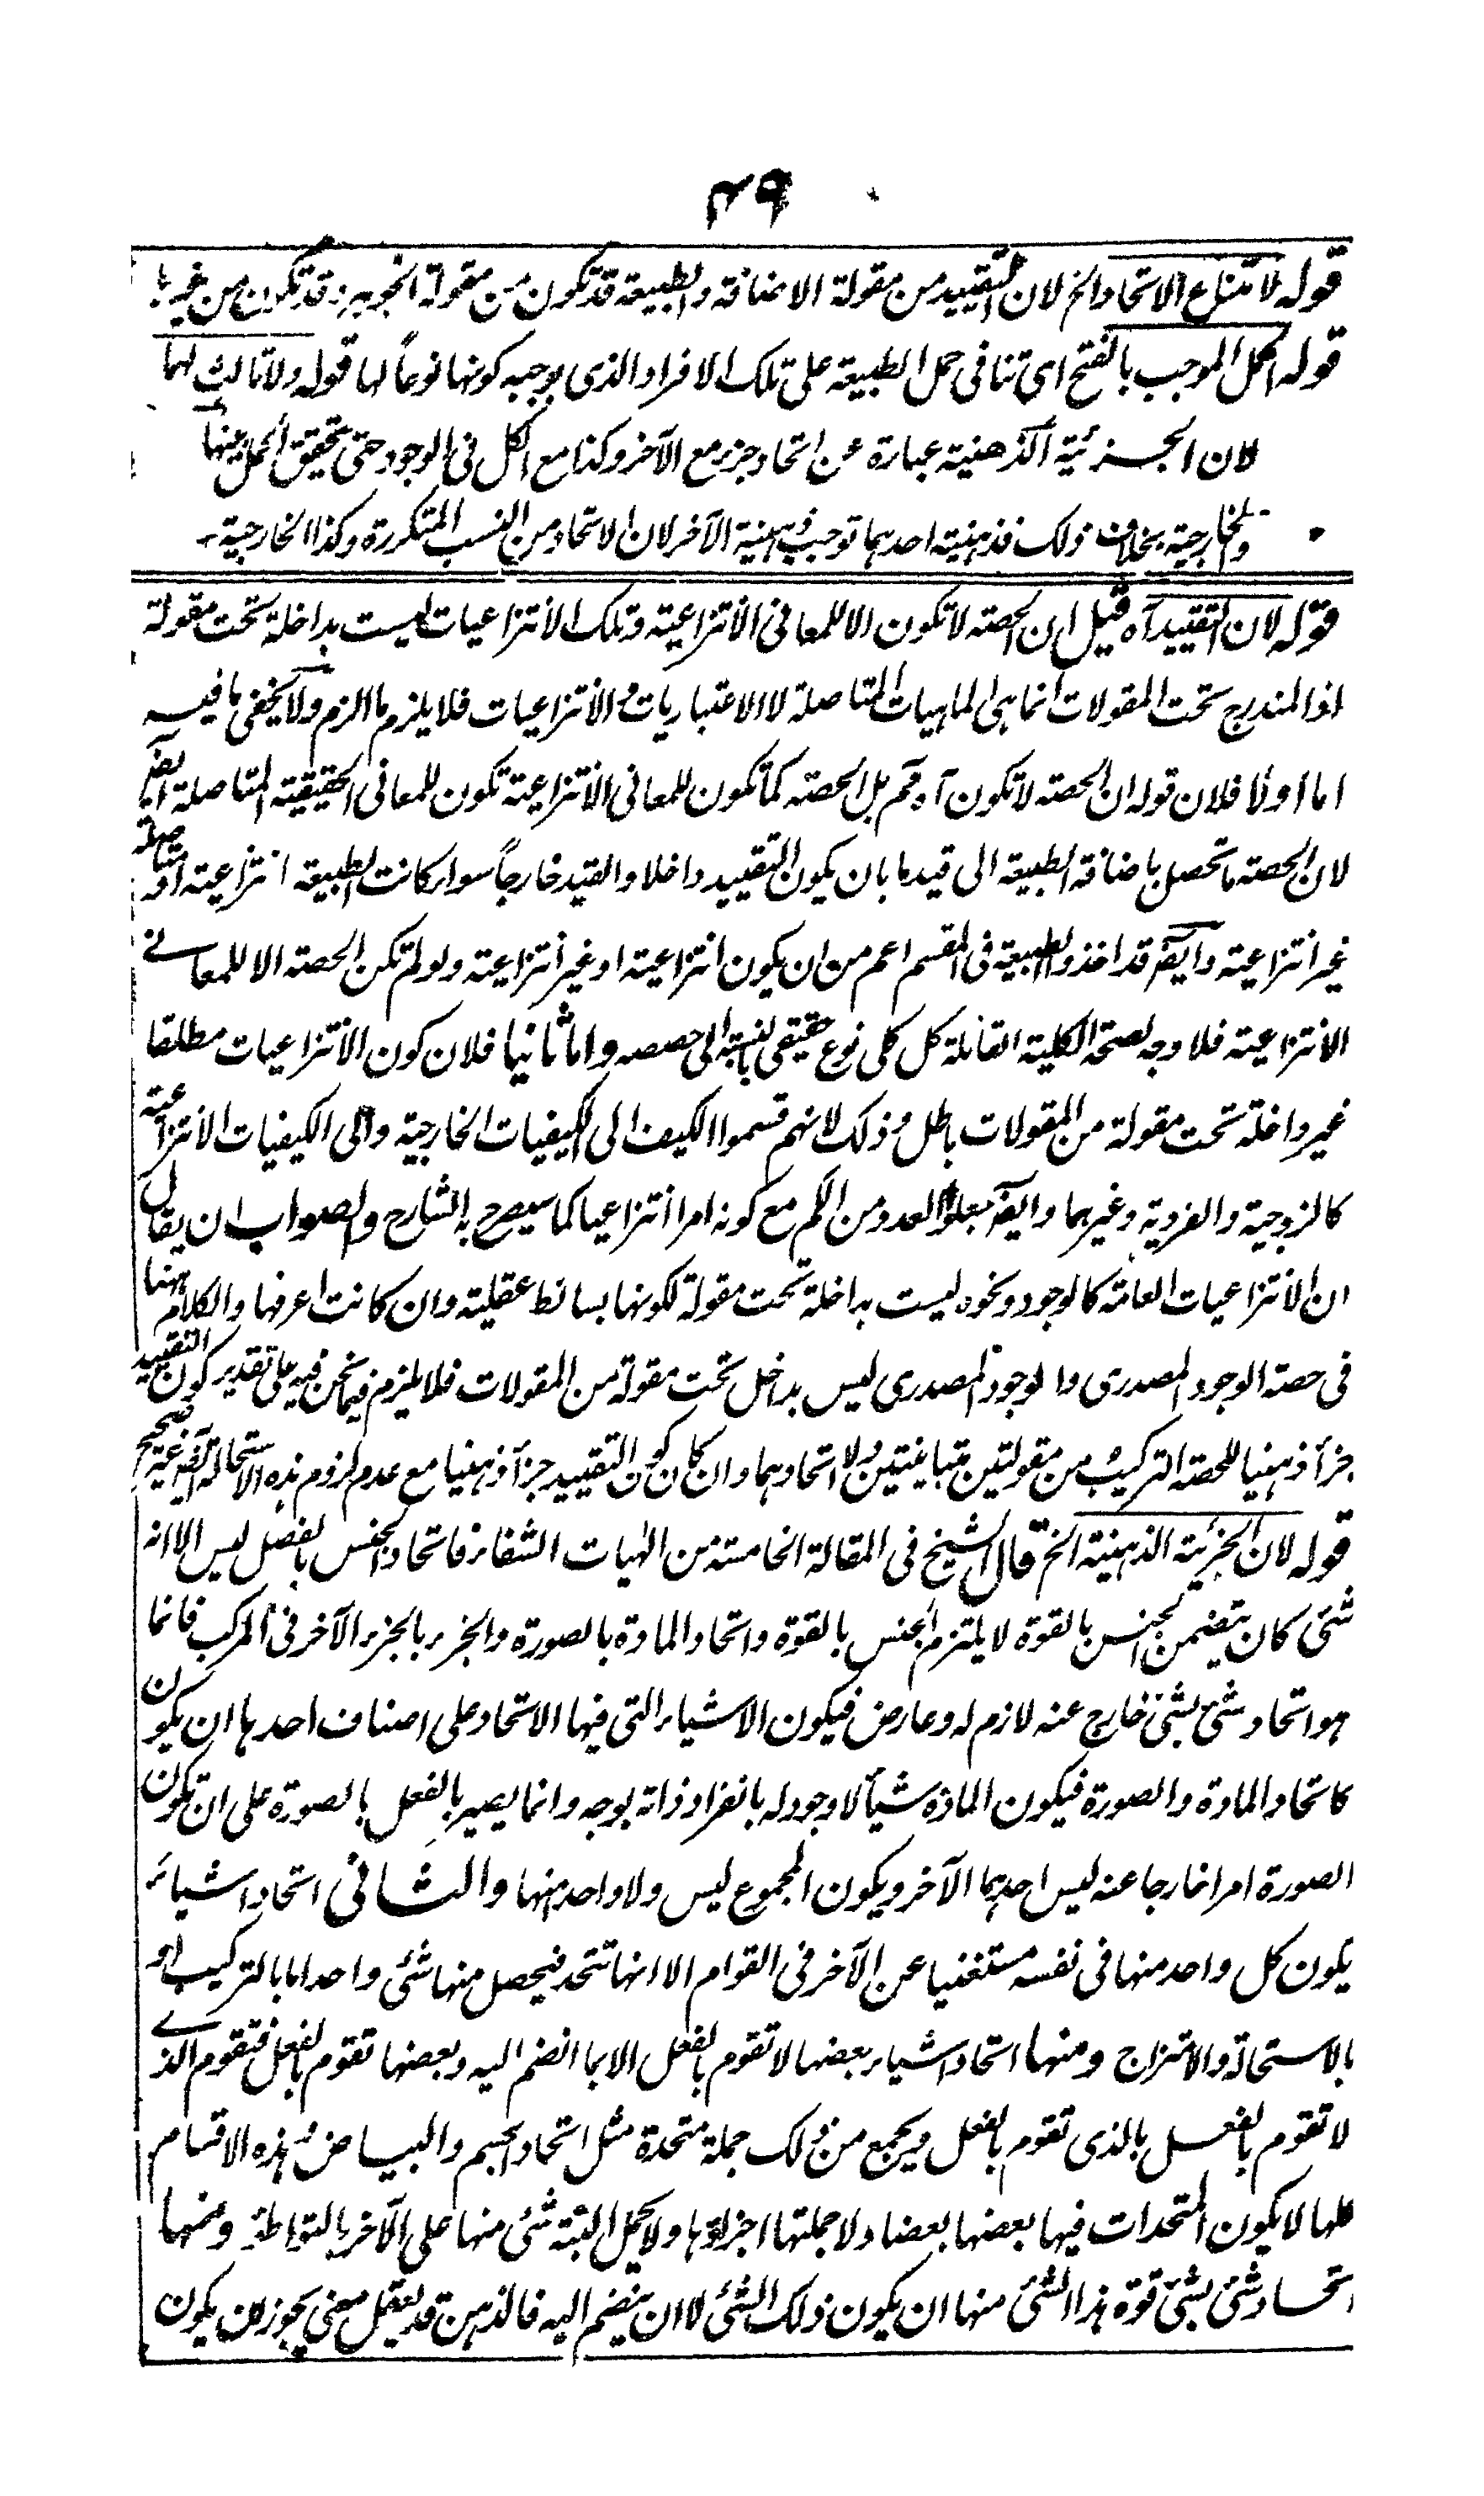 ٤٩
قوله لامتناع الاتحاد الخ لان التقييد من مقولة الاضافة والطبيعة قد تكون من مقولة الجوهر وقد تكون من غيرها
قوله الحمل الموجب بالفتح اى تنافى حمل الطبيعة على تلك الافراد الذى يوجبه كونها نوعاً لها قوله ولا ثالث لهما
لان الجزئية الذهنية عبارة عن اتحاد جزء مع الآخر وكذا مع الكل فى الوجود حتى يتحقق الحمل بينها
والخارجية بخلاف ذلك فذهنية احدهما توجب ذهنية الآخر لان الاتحاد من النسب المتكررة وكذا الخارجية۔
قوله لان التقييد آه قيل ان الحصة لا تكون الا للمعانى الانتزاعية وتلك الانتزاعيات ليست بداخلة تحت مقولة
اذ المندرج تحت المقولات انما هى الماهيات المتاصلة لا الاعتباريات والانتزاعيات فلا يلزم ما الزم ولا يخفى ما فيه
اما اولا فلان قوله ان الحصة لا تكون آه مم بل الحصة كما تكون للمعانى الانتزاعية تكون للمعانى الحقيقية المتاصلة ايضا
لان الحصة ما تحصل باضافة الطبيعة الى قيد ما بان يكون التقييد داخلا والقيد خارجاً سواء كانت الطبيعة انتزاعية او متاصلة
غير انتزاعية وايضا قد اخذوا الطبيعة فى المقسم اعم من ان يكون انتزاعية او غير انتزاعية ولو لم تكن الحصة الا للمعانے
الانتزاعية فلا وجه لصحة الكلية القائلة كل كلى نوع حقيقى بالنسبة الى حصصه واما ثانيا فلان كون الانتزاعيات مطلقا
غير داخلة تحت مقولة من المقولات باطل وذلك لانهم قسموا الكيف الى الكيفيات الخارجية والى الكيفيات الانتزاعية
كالزوجية والفردية وغيرهما وايضا جعلوا العدد من الكم مع كونه امرا انتزاعيا كما سيصرح به الشارح والصواب ان يقال
ان الانتزاعيات العامة كالوجود ونحوه ليست بداخلة تحت مقولة لكونها بسائط عقلية وان كانت اعرفها والكلام ههنا
فى حصة الوجود المصدرى والوجود المصدرى ليس بداخل تحت مقولة من المقولات فلا يلزم فيما نحن فيه على تقدير كون التقييد
جزأ ذهنيا للحصة التركيب من مقولتين متباينتين ولا اتحادهما وان كان كون التقييد جزأ ذهنيا مع عدم لزوم هذه الاستحالة ايضا غير صحيح
قوله لان الجزئية الذهنية الخ قال الشيخ فى المقالة الخامسة من الٰهيات الشفاء فاتحاد الجنس بالفصل ليس الا انه
شئ كان يتضمن الجنس بالقوة لا يلتزم الجنس بالقوة واتحاد المادة بالصورة والجزء بالجزء الآخر فى المركب فانما
هو اتحاد شئ بشئ خارج عنه لازم له وعارض فيكون الاشياء التى فيها الاتحاد على اصناف احدها ان يكون
كاتحاد المادة والصورة فيكون المادة شيأ لا وجود له بانفراد ذاته بوجه وانما يصير بالفعل بالصورة على ان تكون
الصورة امرا خارجا عنه ليس احدهما الآخر ويكون المجموع ليس ولا واحد منهما والثانى اتحاد اشياء
يكون كل واحد منها فى نفسه مستغنيا عن الآخر فى القوام الا انها تتحد فيحصل منها شئ واحد اما بالتركيب او
بالاستحالة والامتزاج ومنها اتحاد اشياء بعضها لا تقوم بالفعل الا بما انضم اليه وبعضها تقوم بالفعل فتقوم الذے
لا تقوم بالفعل بالذى تقوم بالفعل ويجمع من ذلك جملة متحدة مثل اتحاد الجسم والبياض وهذه الاقسام
كلها لا يكون المتحدات فيها بعضها بعضا ولا جملتها اجزاؤها ولا يحمل البتة شئ منها على الآخر بالتواطئ ومنها
اتحاد شئ بشئ قوة هذا الشئ منها ان يكون ذلك الشئ لا ان ينضم اليه فالذهن قد يعقل معنى يجوز ان يكون